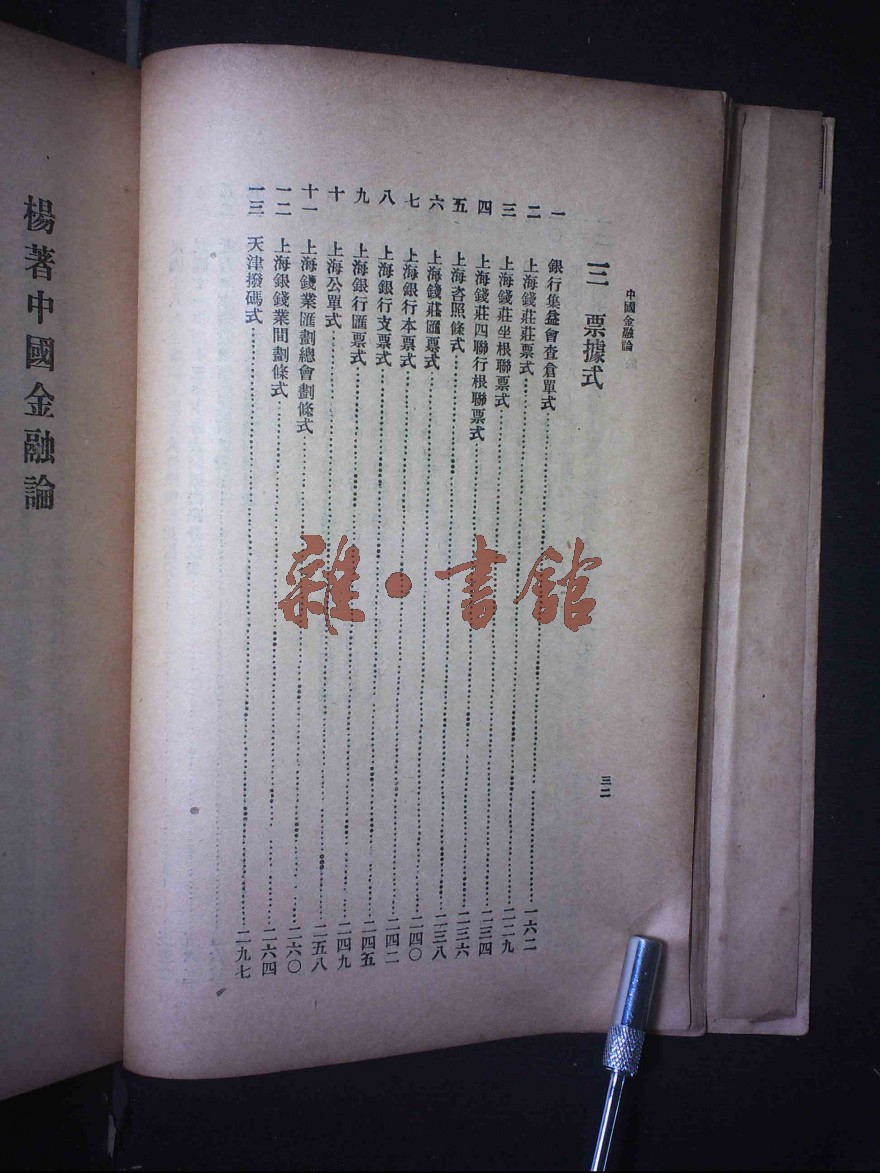 中國金融論 三二
三 票據式
一 銀行集益會查倉單式……一六二
二 上海錢莊莊票式……二二九
三 上海錢莊坐根聯票式……二三四
四 上海錢莊四聯行根聯票式……二三六
五 上海咨照條式……二三八
六 上海錢莊匯票式……二四〇
七 上海銀行本票式……二四二
八 上海銀行支票式……二四五
九 上海銀行匯票式……二四九
十 上海公單式……二五八
十一 上海錢業匯劃總會劃條式……二六〇
一二 上海銀錢業間劃條式……二六四
一三 天津撥碼式……二九七
楊著中國金融論
雜·書館